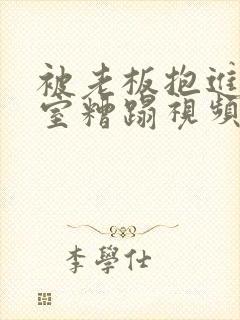 被老板抱進
室糟蹋視頻
李學仕